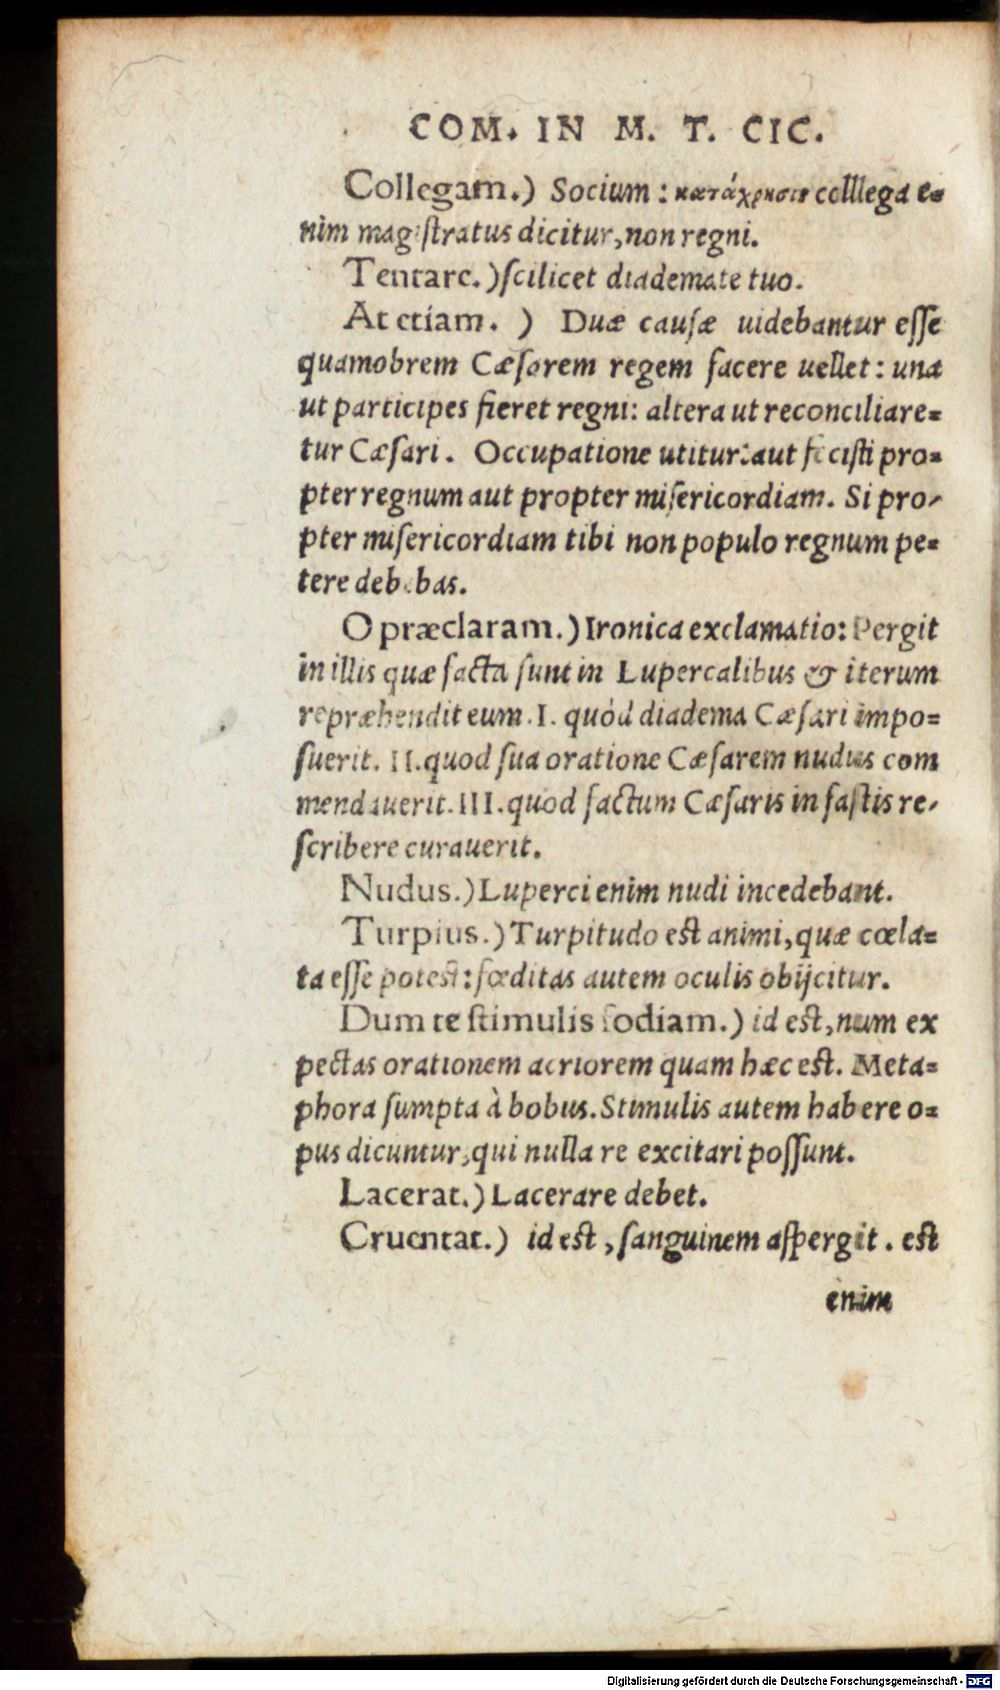 COM. IN M. T. CIC.
Collegam.) Socium : κατάχρησις colllega e=
nim magistratus dicitur, non regni.
Tentare.) scilicet diademate tuo.
At etiam. ) Duæ causæ uidebantur esse
quamobrem Cæsarem regem facere uellet : una
ut particips fieret regni: altera ut reconciliare=
tur Cæsari. Occupatione utitur: aut fecisti pro=
pter regnum aut propter misericordiam. Si pro-
pter misericordiam tibi non populo regnum pe=
tere debebas.
O præclaram.) Ironica exclamatio: Pergit
in illis quæ facta sunt in Lupercalibus & iterum
repræhendit eum. I. quòd diadema Cæsari impo=
suerit. II. quod sua oratione Cæsarem nudus com
mendauerit. III. quod factum Cæsaris in fastis re-
scribere curauerit.
Nudus.) Luperci enim nudi incedebant.
Turpius.) Turpitudo est animi, quæ cœla=
ta esse potest : fœditas autem oculis obijcitur.
Dum te stimulis fodiam.) id est, num ex
pectas orationem acriorem quam hæc est. Meta=
phora sumpta à bobus. Stimulis autem habere o=
pus dicuntur, qui nulla re excitari possunt.
Lacerat.) Lacerare debet.
Cruentat.) id est, sanguinem aspergit . est
enim
Digitalisierung gefördert durch die Deutsche Forschungsgemeinschaft - DFG